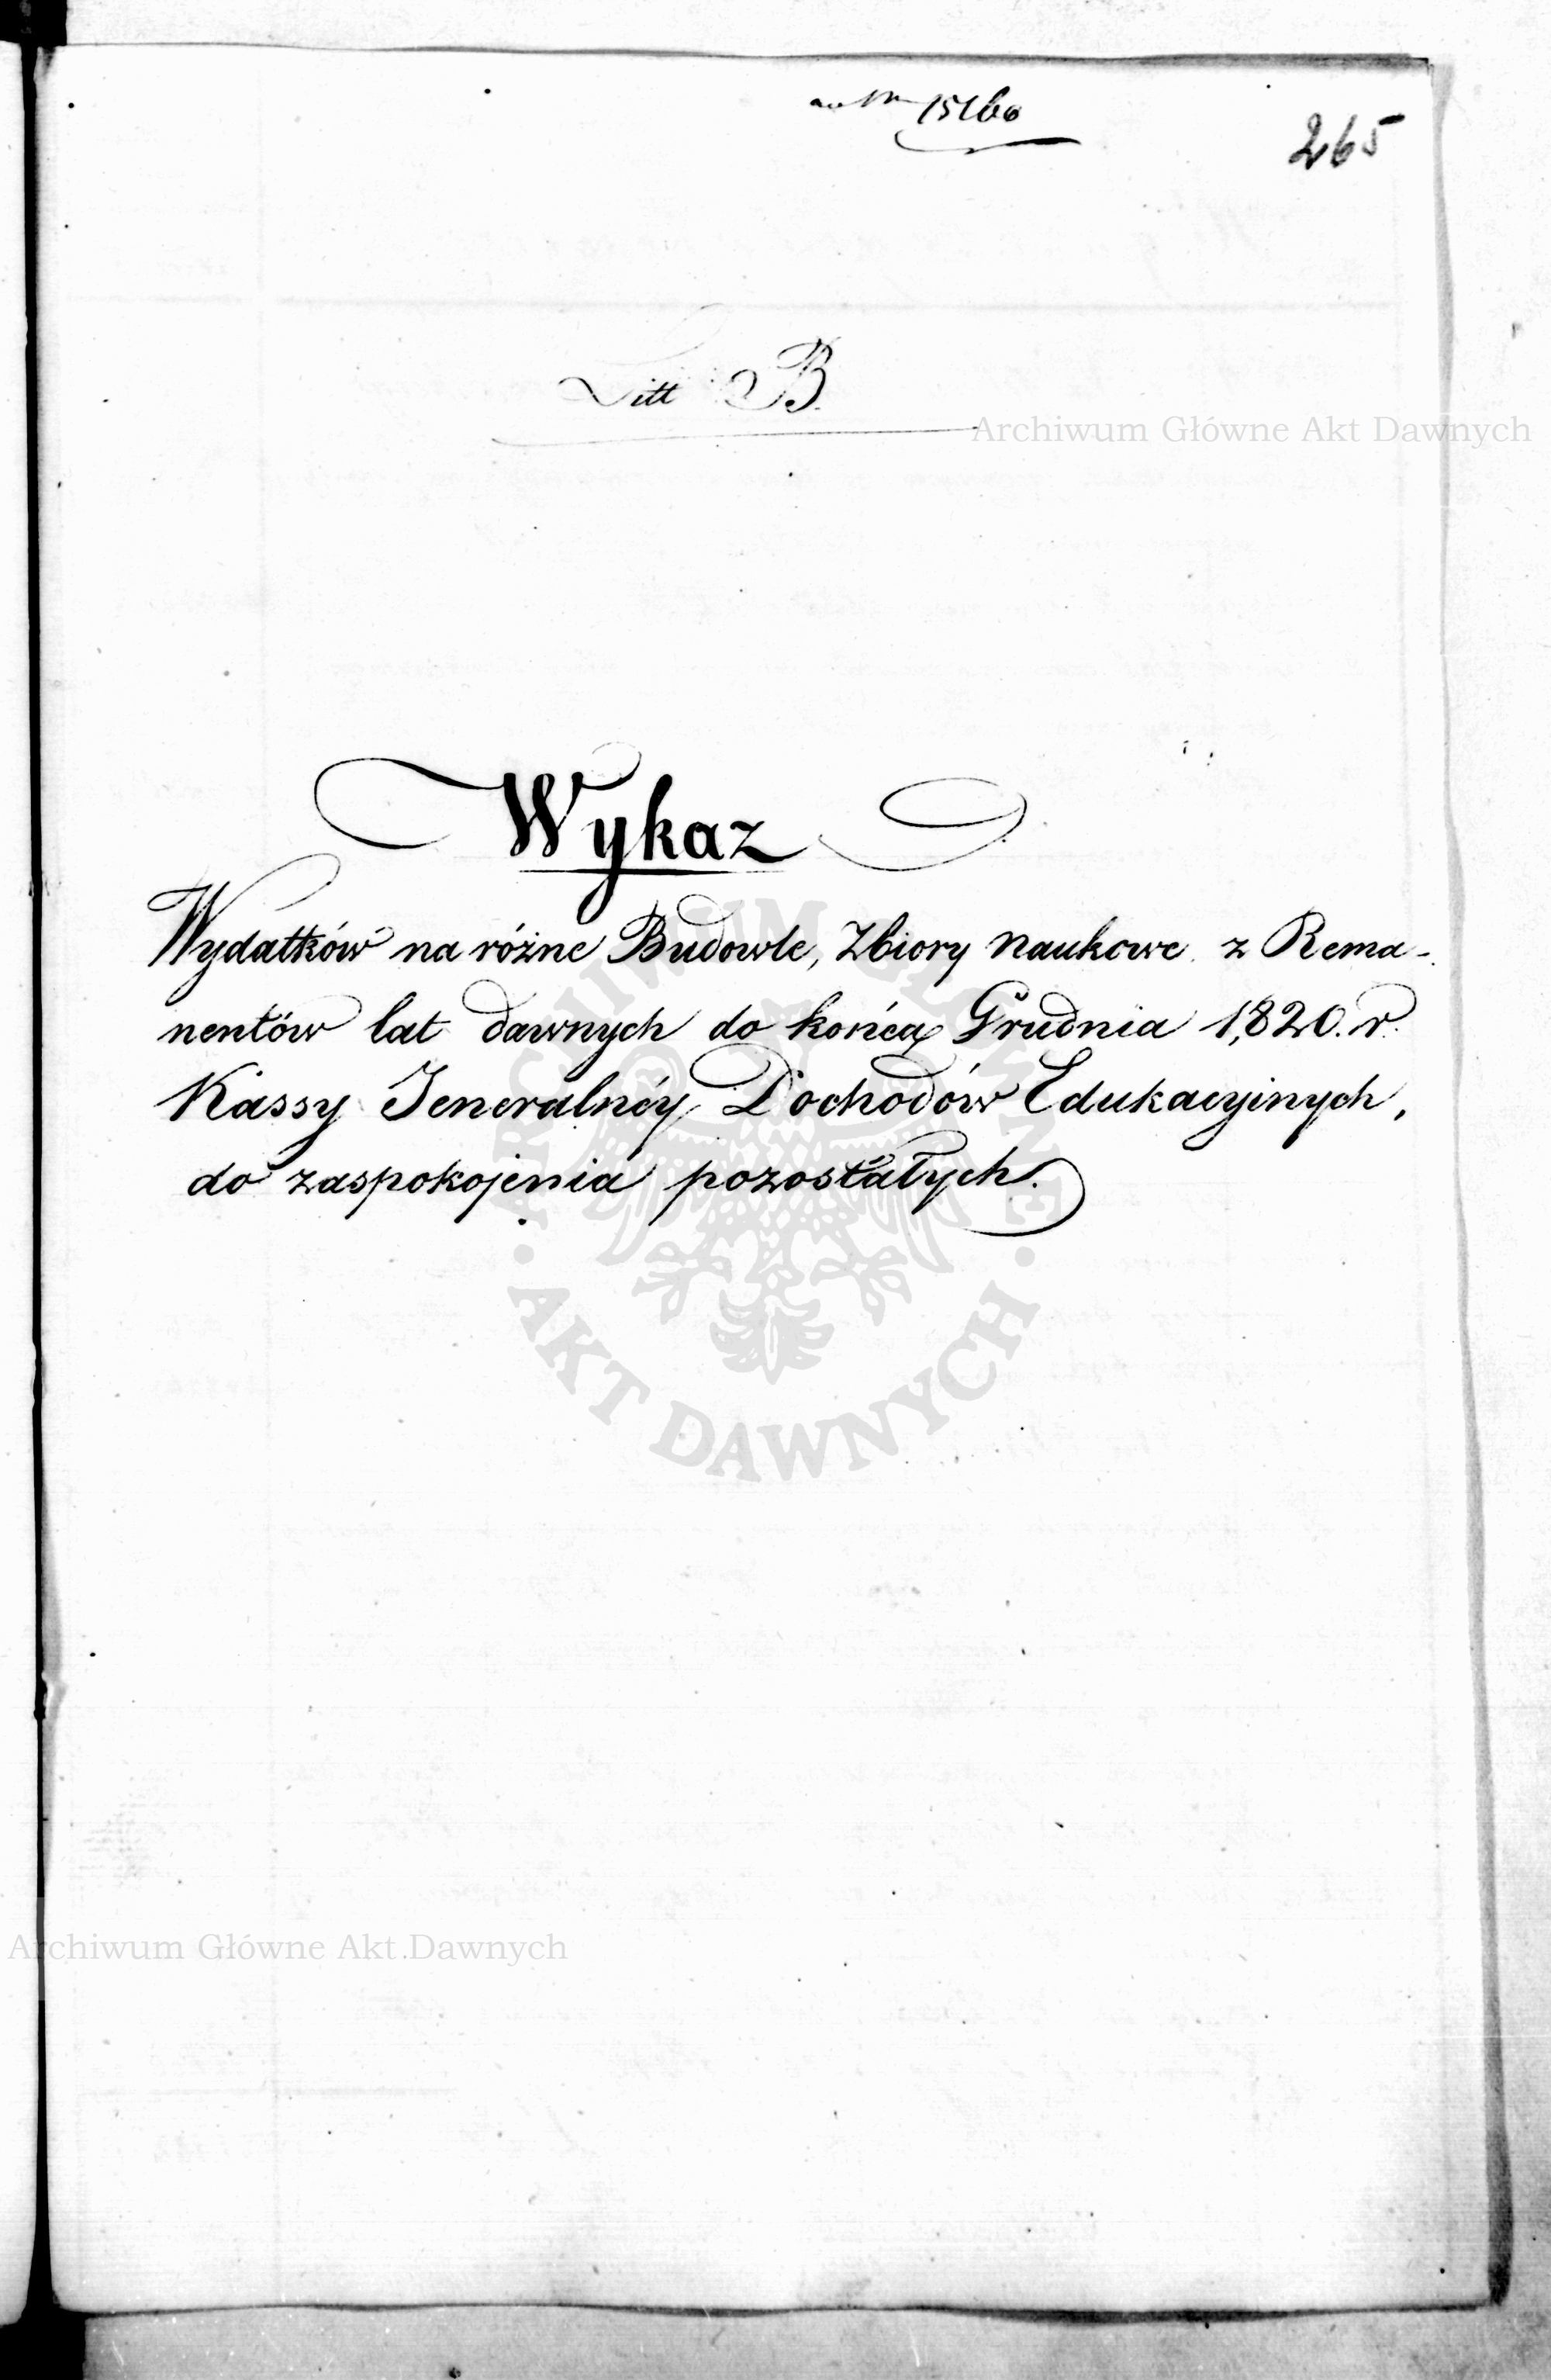 15160
265
Litt B.
Archiwum Główne Akt Dawnych
Wykaz
Wydatków na różne Budowle, Zbiory Naukowe z Rema-
nentów lat dawnych do końca Grudnia 1,820. r.
Kassy Jeneralnéy Dochodów Edukacyinych,
do zaspokojenia pozostałych.
ARCHIWUM GŁÓWNE
· AKT DAWNYCH ·
Archiwum Główne Akt Dawnych